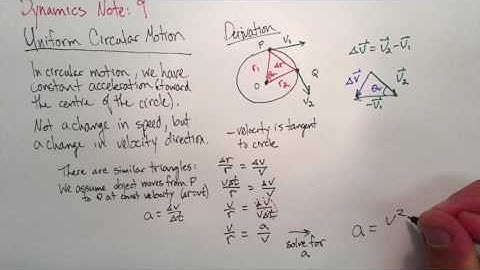 Dynamics Note: 9
Uniform Circular Motion
In circular motion, we have
constant acceleration (toward
the centre of the circle).
Not a change in speed, but
a change in velocity direction.
There are similar triangles:
We assume object moves from P
to Q at const velocity (Δr=vΔt)
a = Δv/Δt
Derivation
P
V₁
r₁
Δr
θ
Q
O
r₂
V₂
- velocity is tangent
to circle
Δr/r = Δv/v
vΔt/r = Δv/v
v/r = Δv/vΔt
v/r = a/v
solve for
a
ΔV = V₂ - V₁
ΔV
V₂
θ
-V₁
a = v²